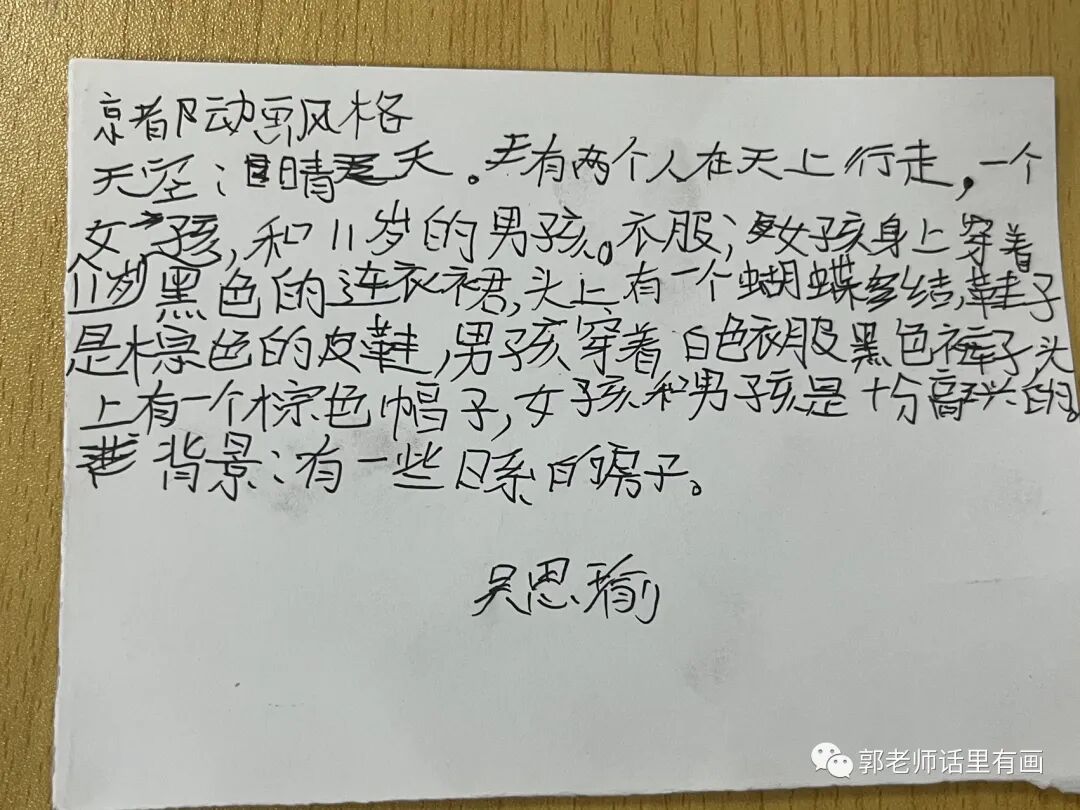 京都动画风格
天空：晴天。有两个人在天上行走，一个
女孩，和11岁的男孩。衣服；女孩身上穿着
11岁黑色的连衣裙，头上有一个蝴蝶结，鞋子
是棕色的皮鞋，男孩穿着白色衣服黑色裤子头
上有一个棕色帽子，女孩和男孩是十分高兴的。
背景：有一些日系的房子。
吴思瑜
郭老师话里有画